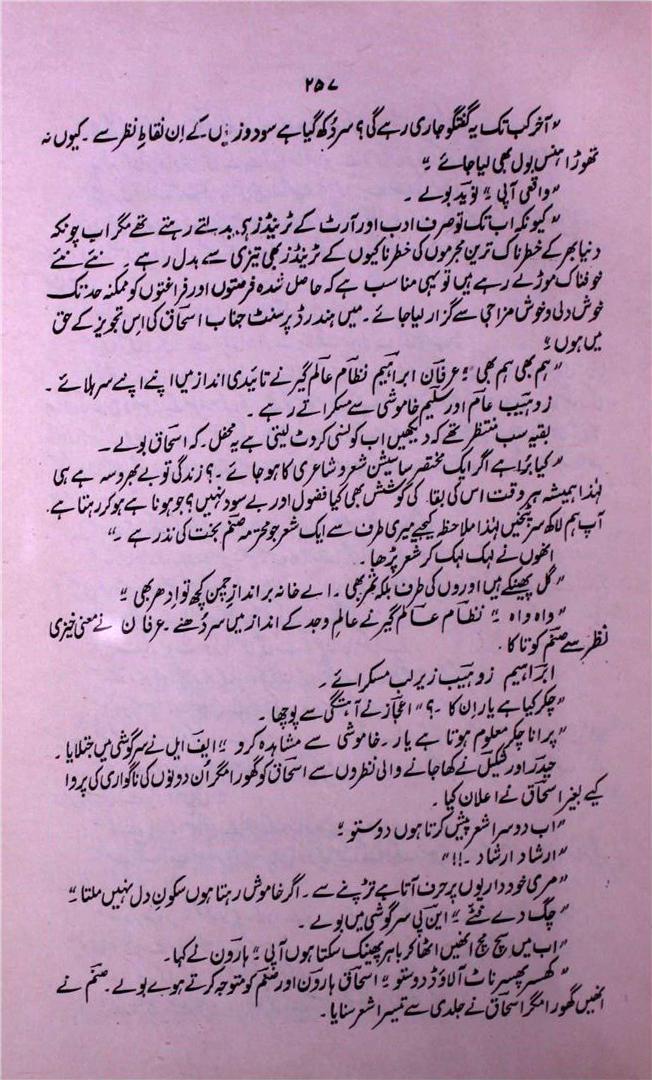 ۲۵۷
"آخر کب تک یہ گفتگو جاری رہے گی؟ سر دُکھ گیا ہے سود و زیاں کے اِن نقاطِ نظر سے۔ کیوں نہ
تھوڑا ہنس بول بھی لیا جائے۔"
"واقعی آپی۔" نوید بولے۔
"کیونکہ اب تک تو صرف ادب اور آرٹ کے ٹرینڈز ہی بدلتے رہتے تھے مگر اب چونکہ
دنیا بھر کے خطرناک ترین مجرموں کی خطرناکیوں کے ٹرینڈز بھی تیزی سے بدل رہے۔ نئے نئے
خوفناک موڑ لے رہے ہیں تو یہی مناسب ہے کہ حاصل شدہ فرصتوں اور فراغتوں کو ممکنہ حد تک
خوش دلی و خوش مزاجی سے گزار لیا جائے۔ میں ہنڈرڈ پرسنٹ جناب اسحاق کی اِس تجویز کے حق
میں ہوں۔"
"ہم بھی ہم بھی۔" عرفان ابراہیم نظام عالم گیر نے تائیدی انداز میں اپنے اپنے سر ہلائے۔
زوہیب عام اور سلیم خاموشی سے مسکراتے رہے۔
بقیہ سب منتظر تھے کہ دیکھیں اب کونسی کروٹ لیتی ہے یہ محفل۔ کہ اسحاق بولے۔
"کیا بُرا ہے اگر ایک مختصر سا سیشن شعر و شاعری کا ہو جائے۔؟ زندگی تو بے بھروسہ ہے ہی
لہٰذا ہمیشہ ہر وقت اس کی بقاء کی گوشش بھی کیا فضول اور بے سود نہیں؟ جو ہونا ہے ہو کر رہتا ہے.
آپ ہم لاکھ سر پٹخیں لہٰذا ملاحظہ کیجیے میری طرف سے ایک شعر جو محترمہ صنم بخت کی نذر ہے۔"
انھوں نے لہک لہک کر شعر پڑھا۔
"گل پھینکے ہیں اوروں کی طرف بلکہ ثمر بھی۔ اے خانہ بر اندازِ چمن کچھ تو اِدھر بھی۔"
"واہ واہ۔" نظام عالم گیر نے عالم وجد کے انداز میں سر دُھنے۔ عرفان نے معنی خیزی
نظر سے صنم کو تاکا.
ابراہیم زوہیب زیرِ لب مسکرائے۔
"چکر کیا ہے یار اِن کا۔؟" اعجاز نے آہستگی سے پوچھا۔
"پرانا چکر معلوم ہوتا ہے یار۔ خاموشی سے مشاہدہ کرو۔" ایف ایل نے سرگوشی میں جتلایا۔
حیدر اور شکیل نے کھا جانے والی نظروں سے اسحاق کو گھورا مگر اُن دونوں کی ناگواری کی پروا
کیے بغیر اسحاق نے اعلان کیا۔
"اب دوسرا شعر پیش کرتا ہوں دوستو۔"
"ارشاد ارشاد۔!!"
"مری خودداریوں پر حرف آتا ہے تڑپنے سے۔ اگر خاموش رہتا ہوں سکونِ دل نہیں ملتا۔"
"چک دے پھٹے۔" این بی سرگوشی میں بولے۔
"اب میں سچ مچ انھیں اٹھا کر باہر پھینک سکتا ہوں آپی۔" ہارون نے کہا۔
"کھسر پھسر ناٹ آلاؤڈ دوستو۔" اسحاق ہارون اور صنم کو متوجہ کرتے ہوے بولے۔ صنم نے
انھیں گھورا مگر اسحاق نے جلدی سے تیسرا شعر سنایا۔